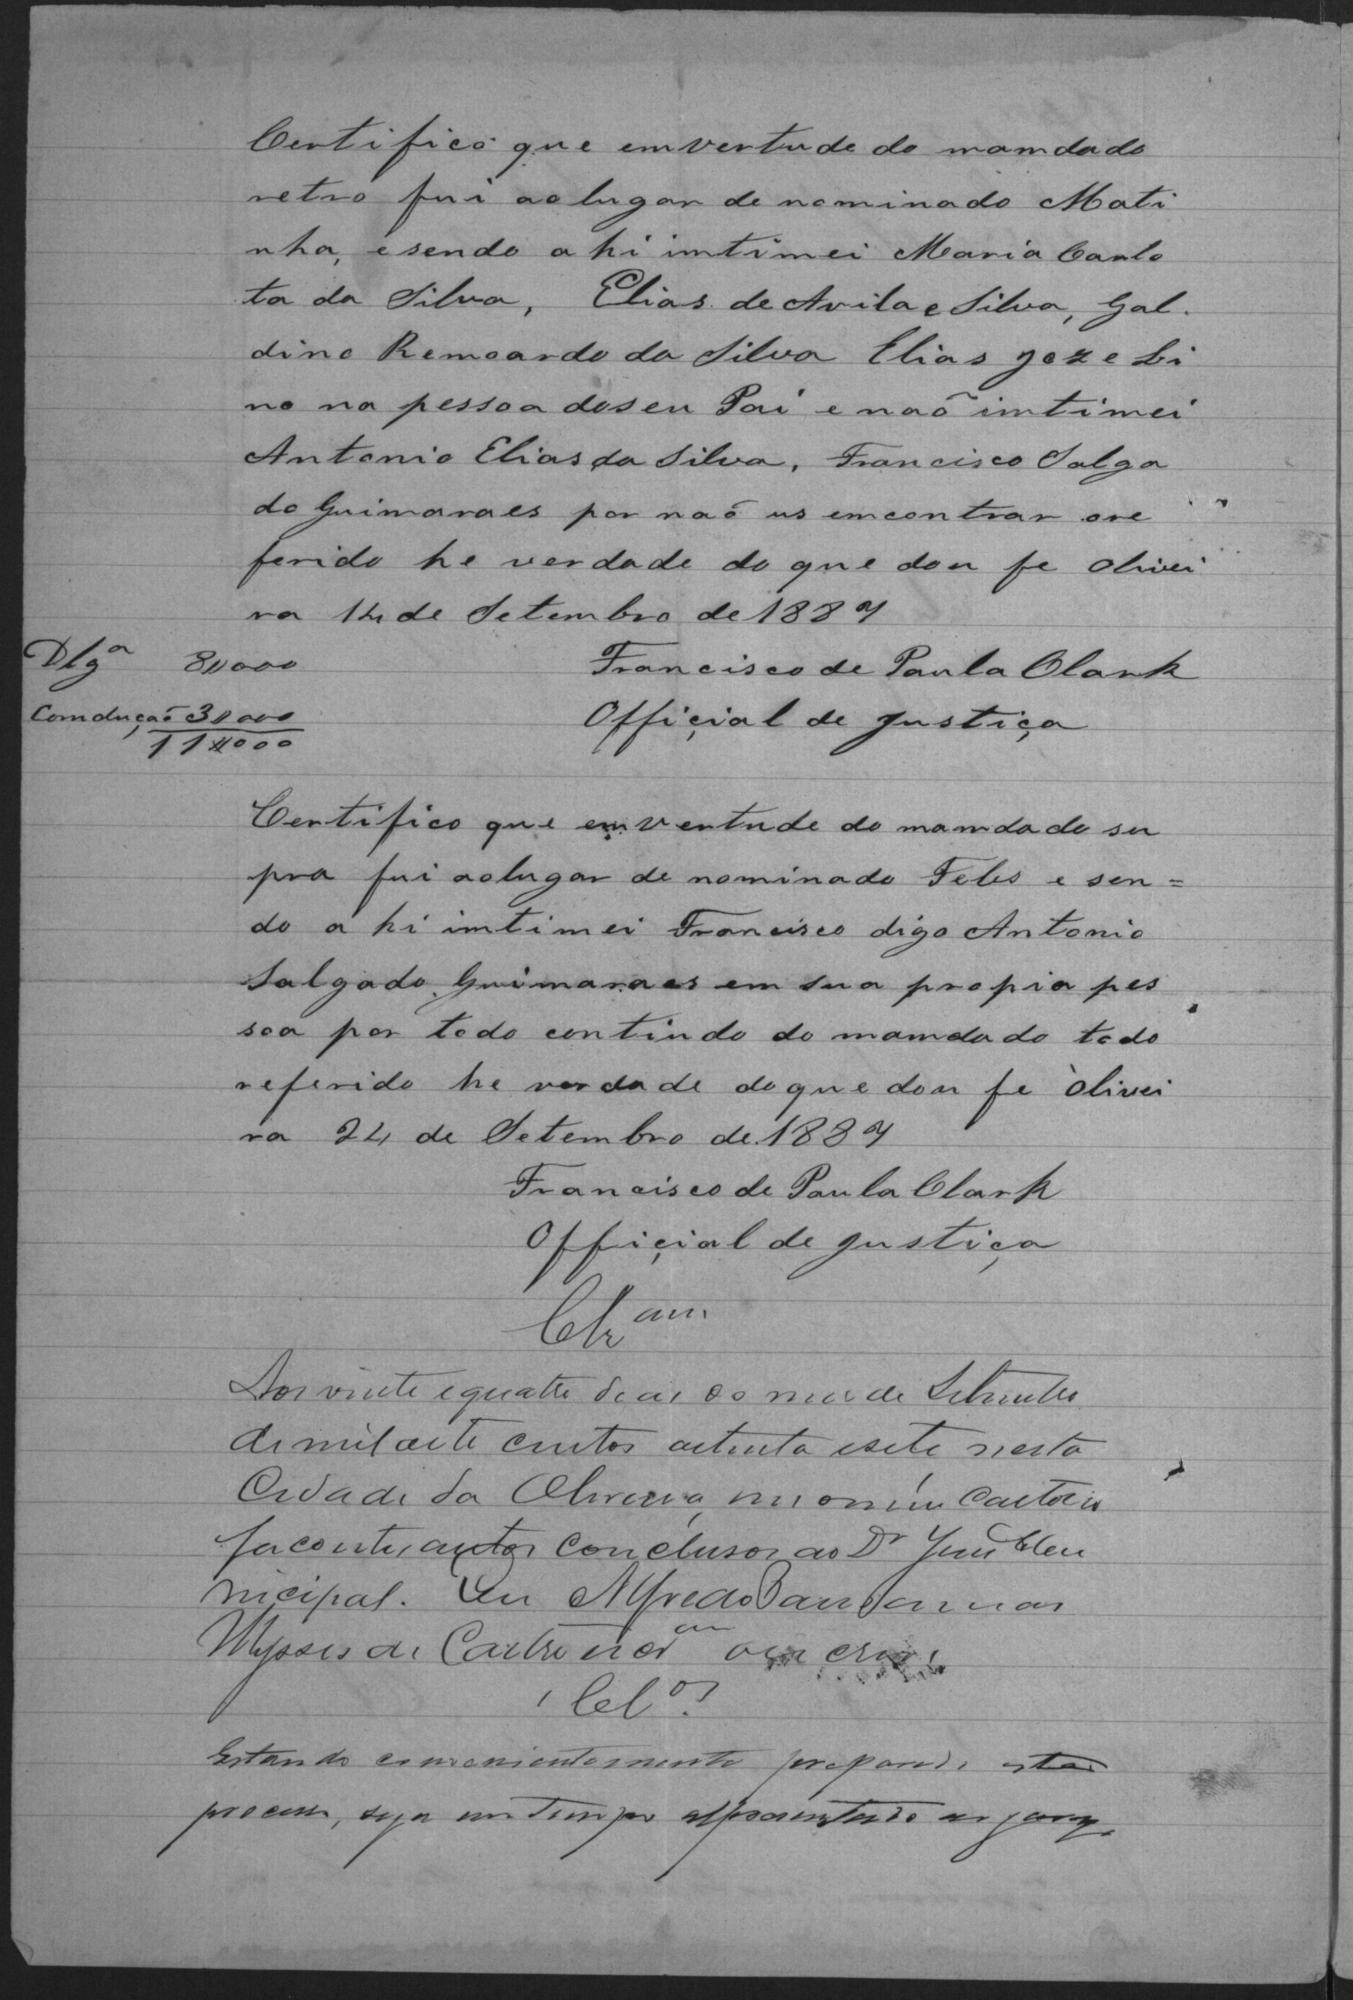 Certifico que em vertude do mamdado
retro fui ao lugar de nominado Mati
nha, e sendo a hi imtimei Maria Carlo
ta da Silva, Elias de Avila e Silva, Gal.
dino Remoardo da Silva Elias Joze Li
no na pessoa do seu Pai e naõ imtimei
Antonio Elias da Silva, Francisco Salga
do Guimaraes por naõ us emcontrar o re
ferido he verdade do que dou fe Olivei
ra 14 de Setembro de 1887
Dlgª 8000
Francisco de Paula Clark
Comduçaõ 3000
Offiçial de Justiça
11000
Certifico que em vertude do mamdado su
pra fui ao lugar de nominado Teles e sen=
do a hi imtimei Francisco digo Antonio
Salgado Guimaraes em sua propia pes
soa por todo contiudo do mamdado todo
referido he verdade do que dou fe Olivei
ra 24 de Setembro de 1887
Francisco de Paula Clark
Offiçial de Justiça
Clzam
Aos vinte e quatro dias do mes de Setembro
de mil oito centos oitenta e sete nesta
Cidade da Oliveira, em o meu Cartorio
faco estes autos conclusos ao Dr Juiz Mu
nicipal. Eu Alfredo
Ulysses de Castro
Clos
Estando convenientemente preparado este
processo, seja em tempo appresentado ao jury